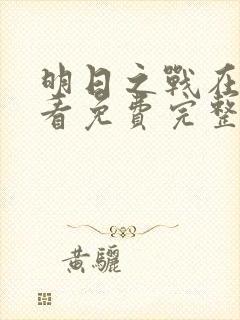 明日之戰在
看免費完整
黃驪